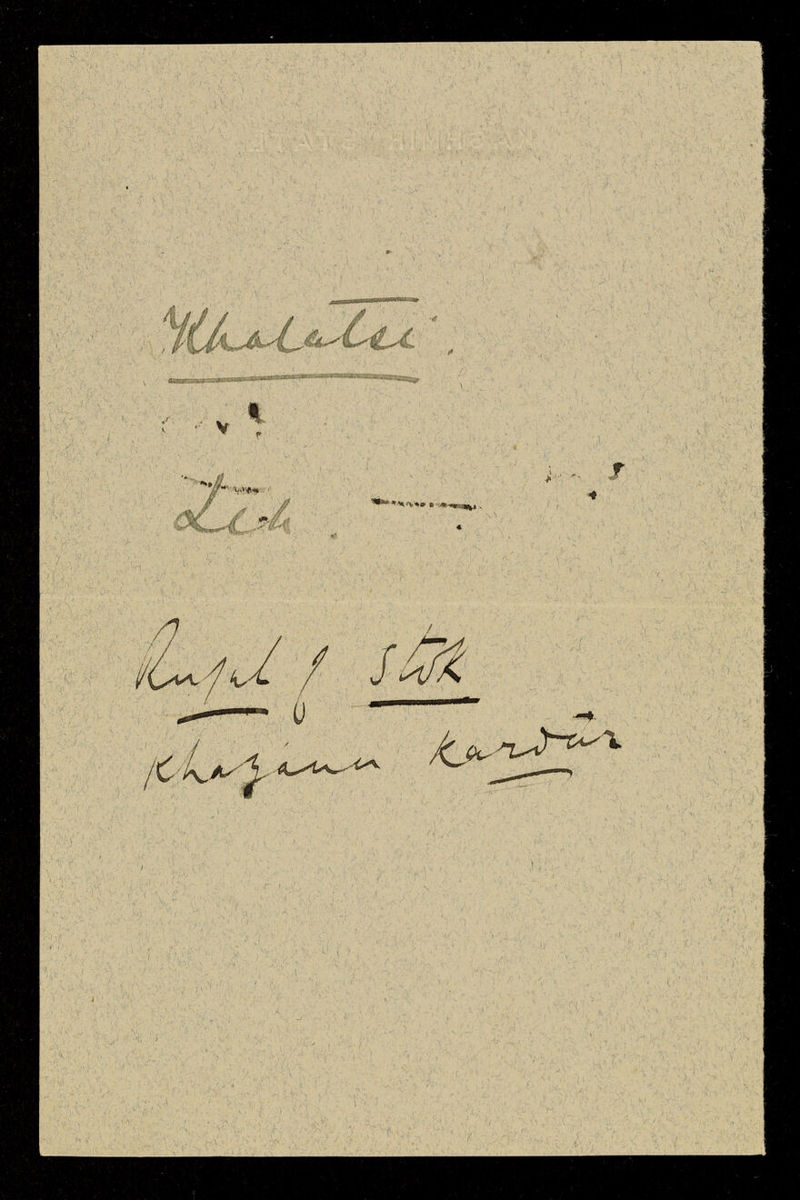 Khalatse.
Leh.
of Stok
Khazana Kardār